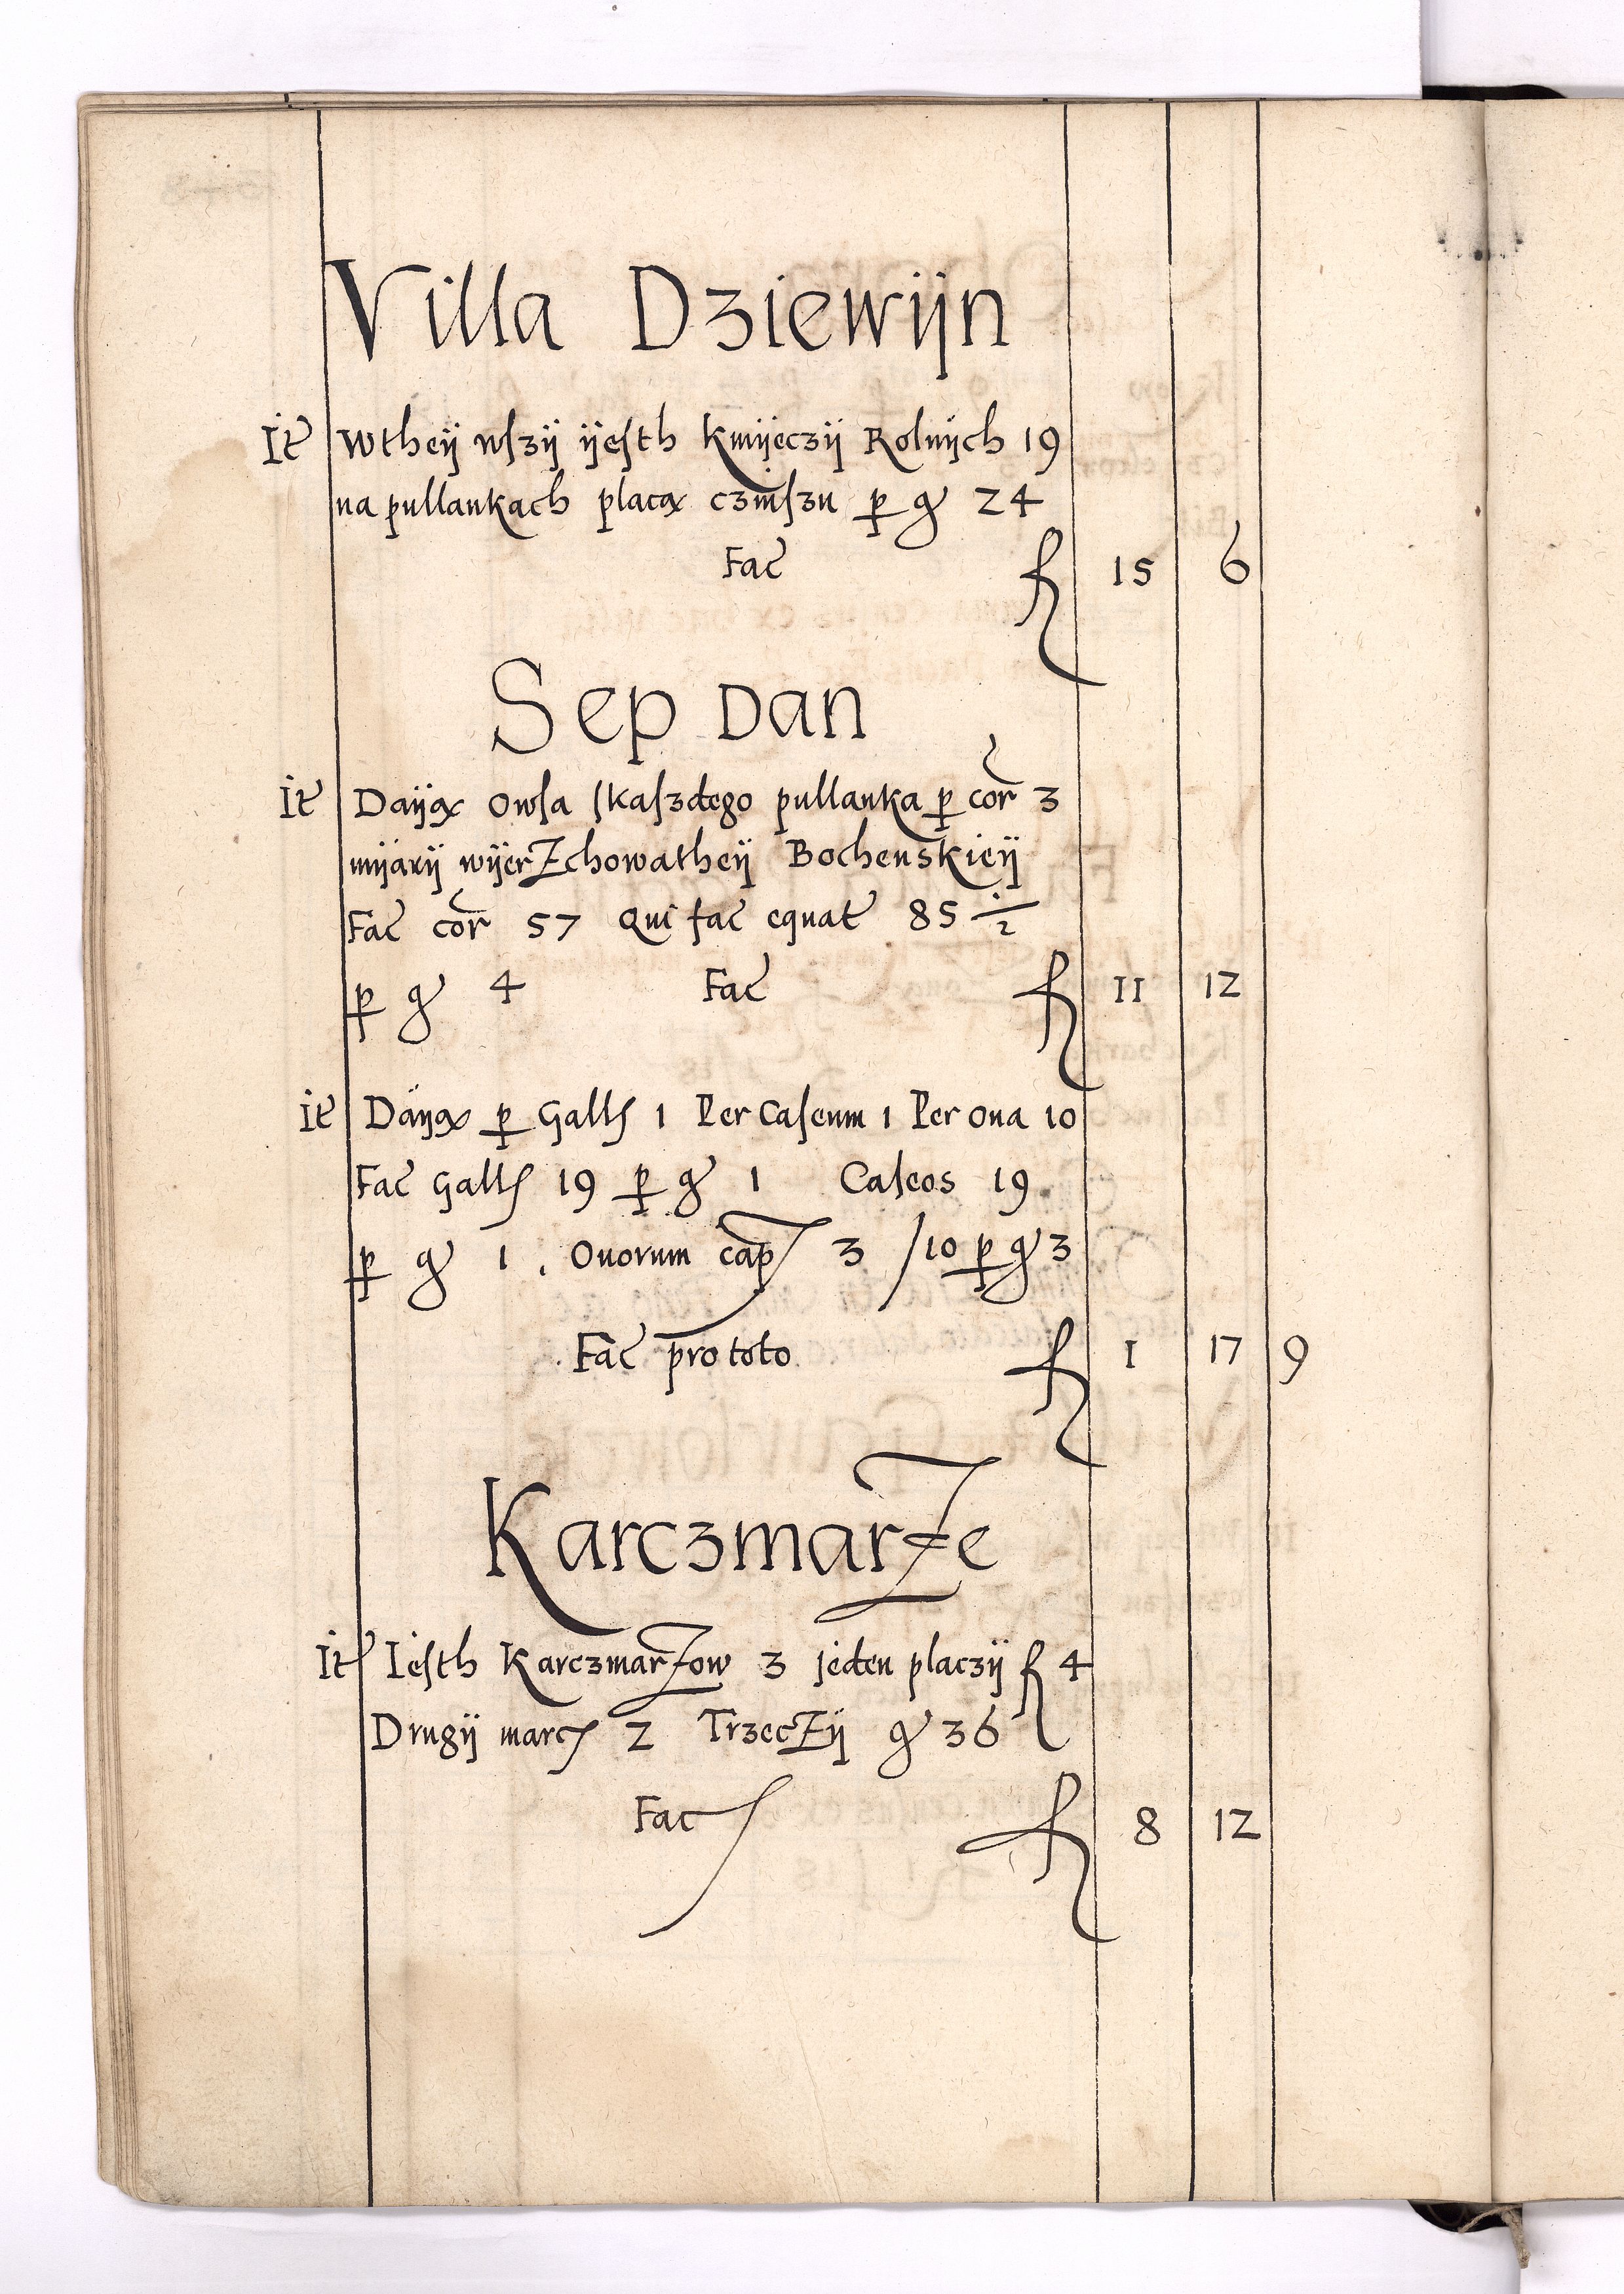 Villa Dziewijn
It Wtheÿ wſzÿ ÿeſth Kmÿeczÿ Rolnÿch 19
na pullankach placą czÿnſzu per g 24
Fac fl 15 6
Sep Dan
It Daÿą Owſa ſkaſzdego pullanka per cor 3
mÿarÿ wÿerzchowatheÿ Bochenskieÿ
Fac cor 57 Qui fac equat 85 1/2
per g 4 Fac fl 11 12
It Daÿą per Gall 1 Per Caſeum 1 Per Oua 10
Fac Gall 19 per g 1 Caſeos 19
per g 1. Ouorum cap 3 /10 per g 3
Fac pro toto fl 1 17 9
Karczmarze
It Ieſth Karczmarzow 3 jeden placzÿ fl 4
Drugÿ marc 2 Trzeczÿ g 36
Fac fl 8 12